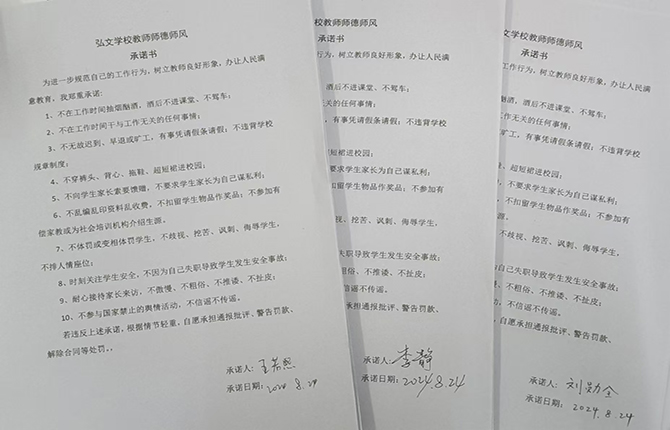 弘文学校教师师德师风
承诺书
为进一步规范自己的工作行为，树立教师良好形象，办让人民满
意教育，我郑重承诺：
1、不在工作时间抽烟酗酒，酒后不进课堂、不驾车；
2、不在工作时间干与工作无关的任何事情；
3、不无故迟到、早退或旷工，有事凭请假条请假；不违背学校
规章制度；
4、不穿裤头、背心、拖鞋、超短裙进校园；
5、不向学生家长索要馈赠，不要求学生家长为自己谋私利；
6、不乱编乱印资料乱收费，不扣留学生物品作奖品；不参加有
偿家教或为社会培训机构介绍生源。
7、不体罚或变相体罚学生，不歧视、挖苦、讽刺、侮辱学生，
不排人情座位；
8、时刻关注学生安全，不因为自己失职导致学生发生安全事故；
9、耐心接待家长来访，不傲慢、不粗俗、不推诿、不扯皮；
10、不参与国家禁止的舆情活动，不信谣不传谣。
若违反上述承诺，根据情节轻重，自愿承担通报批评、警告罚款、
解除合同等处罚，。
承诺人：
承诺日期：2024 8.24
学校教师师德师风
承诺书
行为，树立教师良好形象，办让人民满
酒后不进课堂、不驾车；
无关的任何事情；
旷工，有事凭请假条请假；不违背学校
超短裙进校园；
不要求学生家长为自己谋私利；
不扣留学生物品作奖品；不参加有
不歧视、挖苦、讽刺、侮辱学生，
为自己失职导致学生发生安全事故；
不粗俗、不推诿、不扯皮；
不信谣不传谣。
承担通报批评、警告罚款、
承诺人：李静
承诺日期：2024.8.24
校教师师德师风
承诺书
工作行为，树立教师良好形象，办让人民满
酗酒，酒后不进课堂、不驾车；
工作无关的任何事情；
或旷工，有事凭请假条请假；不违背学校
超短裙进校园；
不要求学生家长为自己谋私利；
不扣留学生物品作奖品；不参加有
不歧视、挖苦、讽刺、侮辱学生，
因为自己失职导致学生发生安全事故；
不粗俗、不推诿、不扯皮；
不信谣不传谣。
自愿承担通报批评、警告罚款、
承诺人：刘勋全
承诺日期：2024.8.24